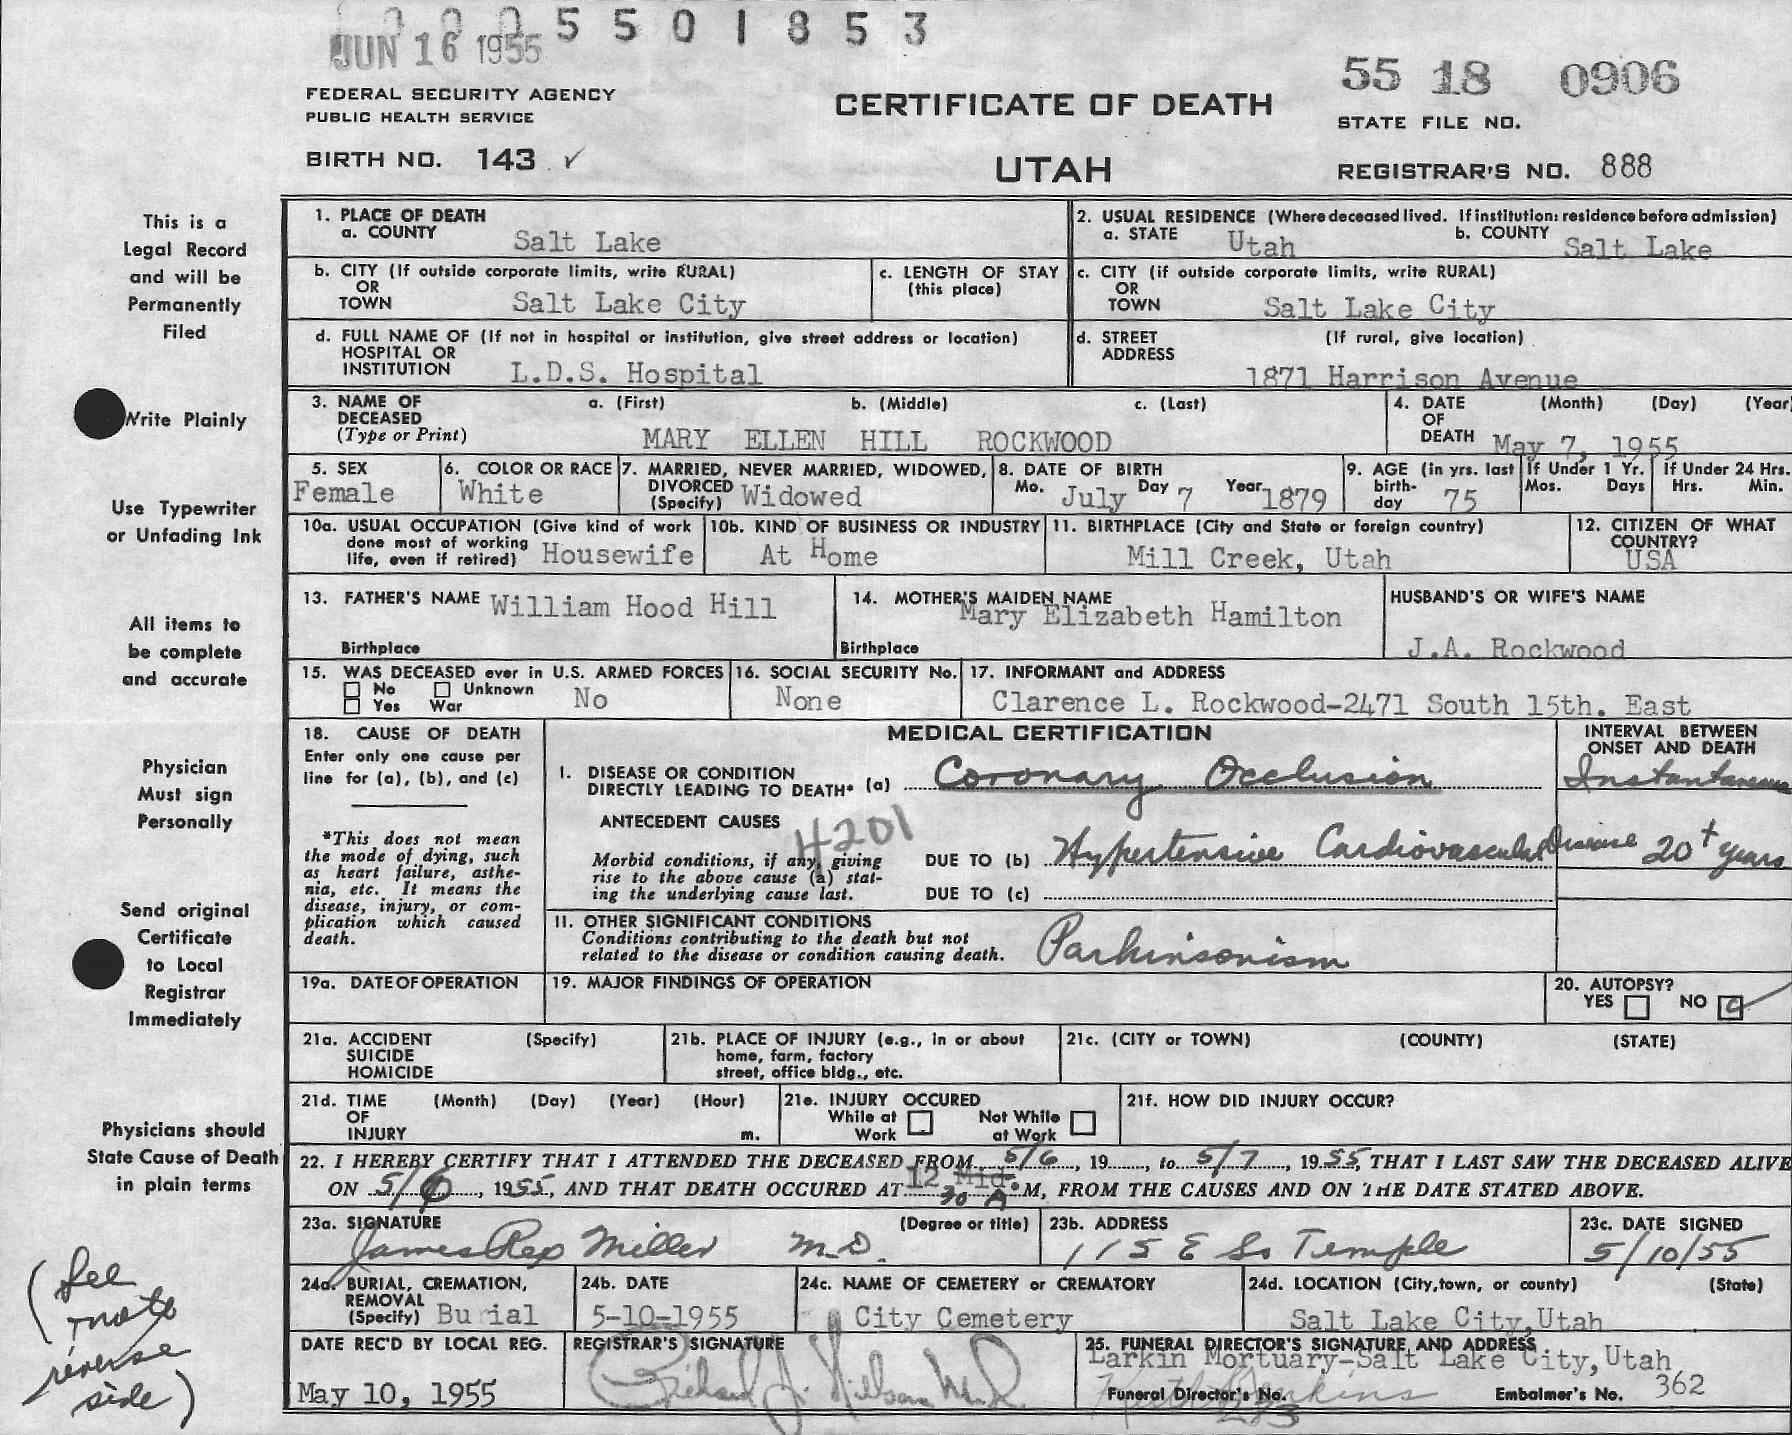 0005501853
JUN 16 1955
55 18 0906
FEDERAL SECURITY AGENCY
PUBLIC HEALTH SERVICE
CERTIFICATE OF DEATH
STATE FILE NO.
BIRTH NO. 143 ✓
UTAH
REGISTRAR'S NO. 888
This is a
Legal Record
and will be
Permanently
Filed
Write Plainly
Use Typewriter
or Unfading Ink
All items to
be complete
and accurate
Physician
Must sign
Personally
Send original
Certificate
to Local
Registrar
Immediately
Physicians should
State Cause of Death
in plain terms
(See
note
reverse
side)
1. PLACE OF DEATH
a. COUNTY Salt Lake
2. USUAL RESIDENCE (Where deceased lived. If institution: residence before admission)
a. STATE Utah b. COUNTY Salt Lake
b. CITY (If outside corporate limits, write RURAL)
OR
TOWN Salt Lake City
c. LENGTH OF STAY
(this place)
c. CITY (if outside corporate limits, write RURAL)
OR
TOWN Salt Lake City
d. FULL NAME OF (If not in hospital or institution, give street address or location)
HOSPITAL OR
INSTITUTION L.D.S. Hospital
d. STREET (If rural, give location)
ADDRESS
1871 Harrison Avenue
3. NAME OF a. (First) b. (Middle) c. (Last)
DECEASED
(Type or Print) MARY ELLEN HILL ROCKWOOD
4. DATE (Month) (Day) (Year)
OF
DEATH May 7, 1955
5. SEX
Female
6. COLOR OR RACE
White
7. MARRIED, NEVER MARRIED, WIDOWED,
DIVORCED
(Specify) Widowed
8. DATE OF BIRTH
Mo. July Day 7 Year 1879
9. AGE (in yrs. last
birth-
day 75
If Under 1 Yr.
Mos. Days
If Under 24 Hrs.
Hrs. Min.
10a. USUAL OCCUPATION (Give kind of work
done most of working
life, even if retired) Housewife
10b. KIND OF BUSINESS OR INDUSTRY
At Home
11. BIRTHPLACE (City and State or foreign country)
Mill Creek, Utah
12. CITIZEN OF WHAT
COUNTRY?
USA
13. FATHER'S NAME William Hood Hill
Birthplace
14. MOTHER'S MAIDEN NAME
Mary Elizabeth Hamilton
Birthplace
HUSBAND'S OR WIFE'S NAME
J.A. Rockwood
15. WAS DECEASED ever in U.S. ARMED FORCES
No Unknown No
Yes War
16. SOCIAL SECURITY No.
None
17. INFORMANT and ADDRESS
Clarence L. Rockwood-2471 South 15th. East
18. CAUSE OF DEATH
Enter only one cause per
line for (a), (b), and (c)
*This does not mean
the mode of dying, such
as heart failure, asthe-
nia, etc. It means the
disease, injury, or com-
plication which caused
death.
MEDICAL CERTIFICATION
INTERVAL BETWEEN
ONSET AND DEATH
I. DISEASE OR CONDITION
DIRECTLY LEADING TO DEATH* (a) Coronary Occlusion Instantaneous
ANTECEDENT CAUSES 4201
Morbid conditions, if any, giving
rise to the above cause (a) stat-
ing the underlying cause last.
DUE TO (b) Hypertensive Cardiovascular Disease 20+ years
DUE TO (c)
II. OTHER SIGNIFICANT CONDITIONS
Conditions contributing to the death but not
related to the disease or condition causing death. Parkinsonism
19a. DATE OF OPERATION
19. MAJOR FINDINGS OF OPERATION
20. AUTOPSY?
YES NO ✓
21a. ACCIDENT (Specify)
SUICIDE
HOMICIDE
21b. PLACE OF INJURY (e.g., in or about
home, farm, factory
street, office bldg., etc.
21c. (CITY or TOWN) (COUNTY) (STATE)
21d. TIME (Month) (Day) (Year) (Hour)
OF
INJURY m.
21e. INJURY OCCURED
While at Not While
Work at Work
21f. HOW DID INJURY OCCUR?
22. I HEREBY CERTIFY THAT I ATTENDED THE DECEASED FROM 5/6, 19....., to 5/7, 1955, THAT I LAST SAW THE DECEASED ALIVE
ON 5/6, 1955, AND THAT DEATH OCCURED AT 12 Mid. 30 A. M, FROM THE CAUSES AND ON THE DATE STATED ABOVE.
23a. SIGNATURE (Degree or title)
James Rex Miller M.D.
23b. ADDRESS
115 E So Temple
23c. DATE SIGNED
5/10/55
24a. BURIAL, CREMATION,
REMOVAL
(Specify) Burial
24b. DATE
5-10-1955
24c. NAME OF CEMETERY or CREMATORY
City Cemetery
24d. LOCATION (City, town, or county) (State)
Salt Lake City, Utah
DATE REC'D BY LOCAL REG.
May 10, 1955
REGISTRAR'S SIGNATURE
Richard J. Nilson M.D.
25. FUNERAL DIRECTOR'S SIGNATURE AND ADDRESS
Larkin Mortuary-Salt Lake City, Utah
Funeral Director's No. Embalmer's No. 362